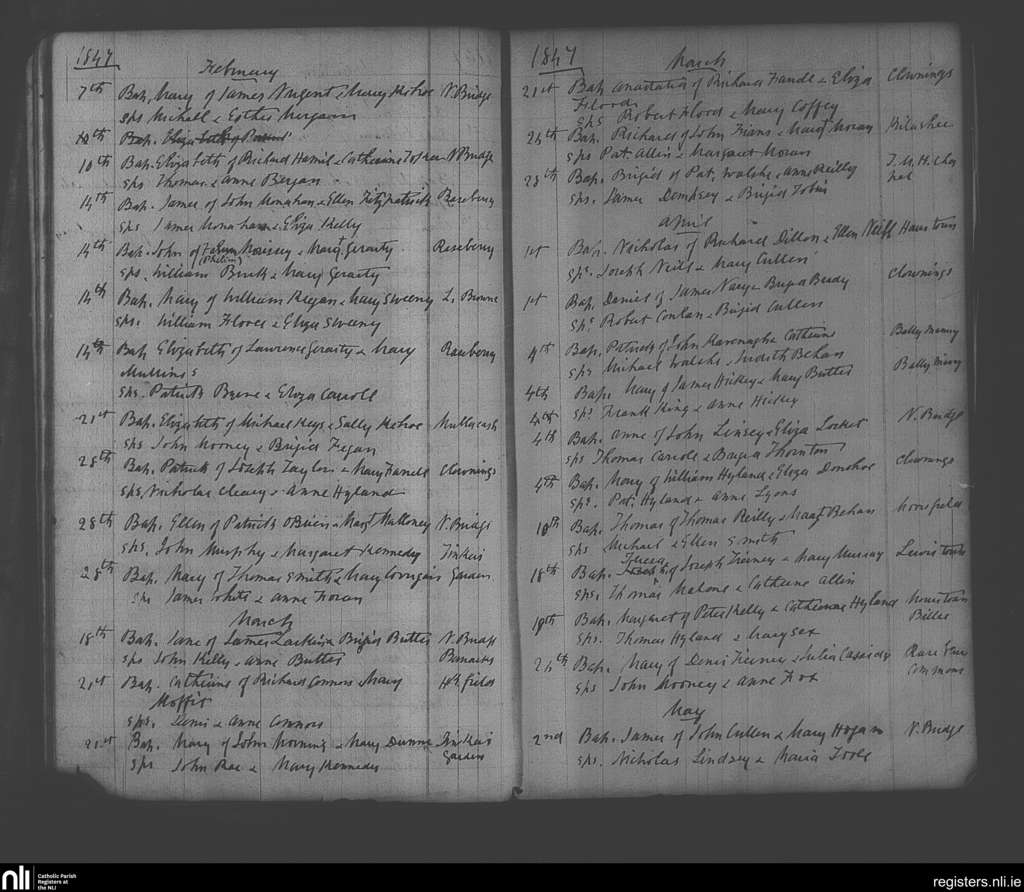 1847
February
7th Bap. Mary of James Nugent & Mary Kehoe N. Bridge
sps Michael & Esther
10th Bap. Eliza
10th Bap. Elizabeth of Richard Hamil & Catherine N. Bridge
sps Thomas & Anne Bergan
14th Bap. James of John Monahan & Ellen Fitzpatrick Roseberry
sps James Monahan & Eliza Kelly
14th Bap. John of & Margt Geraty Roseberry
sps. William Burth & Mary Geraty
14th Bap. Mary of William Hegan & Mary Sweeny L. Browne
sps. William Flood & Eliza Sweeny
14th Bap. Elizabeth of Lawrence Geraty & Mary Roseberry
Mullins
sps. Patrick Byrne & Eliza Carroll
21st Bap. Elizabeth of Michael Keys & Sally Kehoe Mullacash
sps John Mooney & Brigid Fegan
28th Bap. Patrick of Joseph Taylor & Mary Farrell Clownings
sps. Nicholas Cleary & Anne Hyland
28th Bap. Ellen of Patrick OBrien & Margt Mulloney N. Bridge
sps. John Murphy & Margaret Kennedy Tinkers
28th Bap. Mary of Thomas Smith & Mary Garden
sps James White & Anne Foran
March
18th Bap. Jane of James Larkin & Brigid Butler N. Bridge
sps John Kelly & Anne Butler Barracks
21st Bap. Catherine of Richard Connors & Mary Hh. fields
Moffit
sps. Denis & Anne Connors
21st Bap. Mary of John Morning & Mary Dunne Tinkers
sps John Rae & Mary Kennedy Garden
1847
March
21st Bap. Anastatia of Richard Farrell & Eliza Clownings
Flood
sps Robert Flood & Mary Coffey
25th Bap. Richard of John & Margt Moran Kilashee
sps Pat. Allin & Margaret Moran
28th Bap. Brigid of Pat. Walshe & Anne Reilly
sps. James Dempsey & Brigid Tobin
April
1st Bap. Nicholas of Richard Dillon & Ellen Neill
sps. Joseph Neill & Mary Cullen
1st Bap. Daniel of James & Brigid Clownings
sps. Robert Conlan & Brigid Cullen
4th Bap. Patrick of John Kavenagh & Catherine Ballymany
sps Michael Walshe & Judith Behan
4th Bap. Mary of James Hickey & Mary Butler Ballymany
sps. Frank King & Anne Hickey
4th
4th Bap. Anne of John Linsey & Eliza N. Bridge
sps Thomas Carrole & Brigid Thornton
4th Bap. Mary of William Hyland & Eliza Donohoe Clownings
sps. Pat. Hyland & Anne Lyons
10th Bap. Thomas of Thomas Reilly & Margt Behan Moorefield
sps Michael & Ellen Smith
18th Bap. of Joseph Tierney & Mary Murray Lewistown
sps. Thomas Malone & Catherine Allin
18th Bap. Margaret of Peter Kelly & Catherine Hyland
sps. Thomas Hyland & Mary Sex
25th Bap. Mary of Denis Tierney & Julia Cassidy
sps John Mooney & Anne Fox Commons
May
2nd Bap. James of John Cullen & Mary Hogan N. Bridge
sps. Nicholas Lindsey & Maria Toole
nli Catholic Parish
Registers at
the NLI
registers.nli.ie